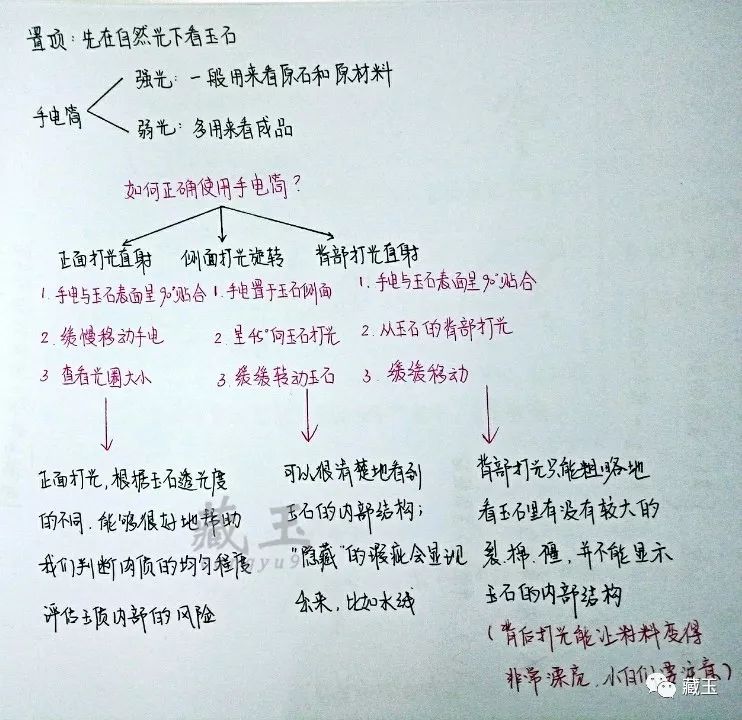 置顶：先在自然光下看玉石
手电筒
强光：一般用来看原石和原材料
弱光：多用来看成品
如何正确使用手电筒？
正面打光直射
1.手电与玉石表面呈90°贴合
2.缓慢移动手电
3 查看光圈大小
正面打光，根据玉石透光度
的不同.能够很好地帮助
我们判断内质的均匀程度
评估玉质内部的风险
侧面打光旋转
1.手电置于玉石侧面
2.呈45°向玉石打光
3.缓缓转动玉石
可以很清楚地看到
玉石的内部结构；
"隐藏"的瑕疵会显现
出来，比如水线
背部打光直射
1.手电与玉石表面呈90°贴合
2.从玉石的背部打光
3.缓缓移动
背部打光只能粗略地
看玉石里有没有较大的
裂、棉、僵，并不能显示
玉石的内部结构
（背后打光能让料料变得
非常漂亮、小白们要注意）
藏玉
藏玉